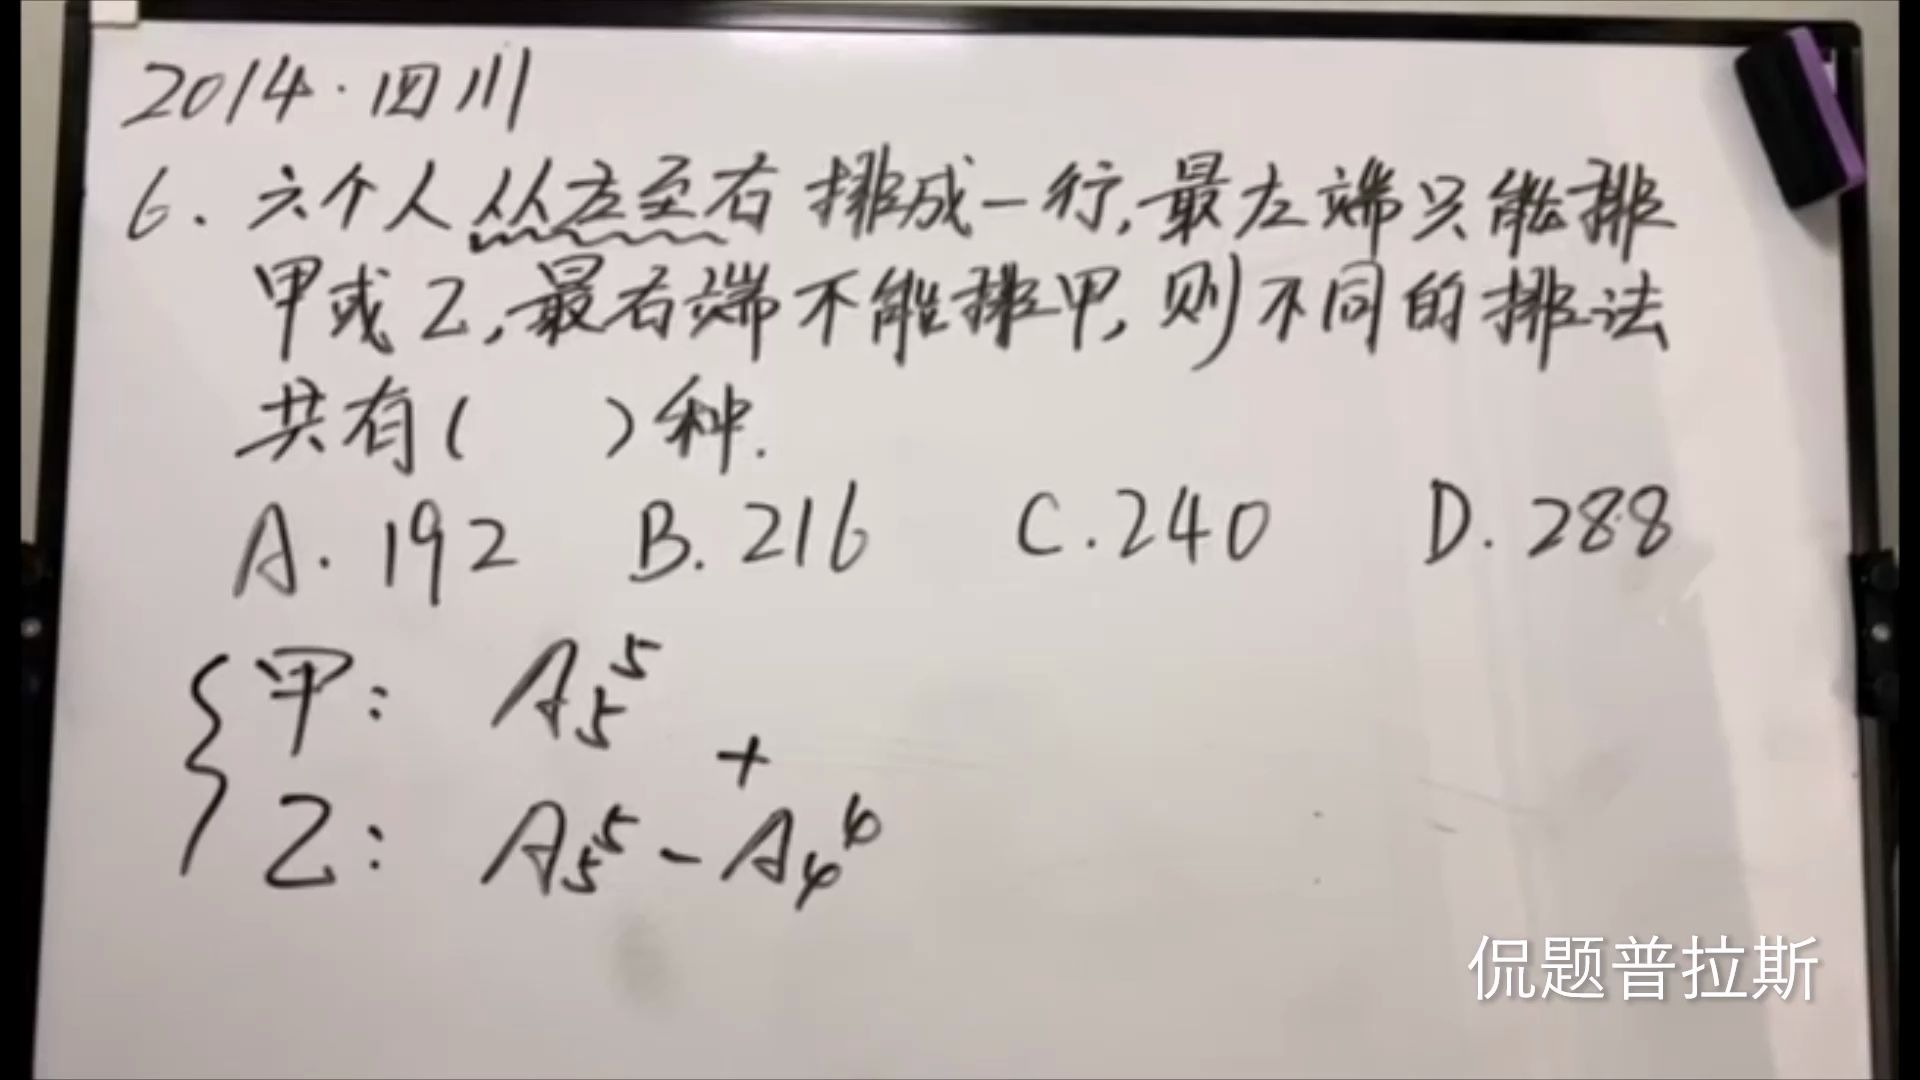 2014·四川
6. 六个人从左至右排成一行,最左端只能排
甲或乙,最右端不能排甲,则不同的排法
共有( )种.
A. 192 B. 216 C. 240 D. 288
甲: A₅⁵
+
乙: A₅⁵ - A₄⁴
侃题普拉斯